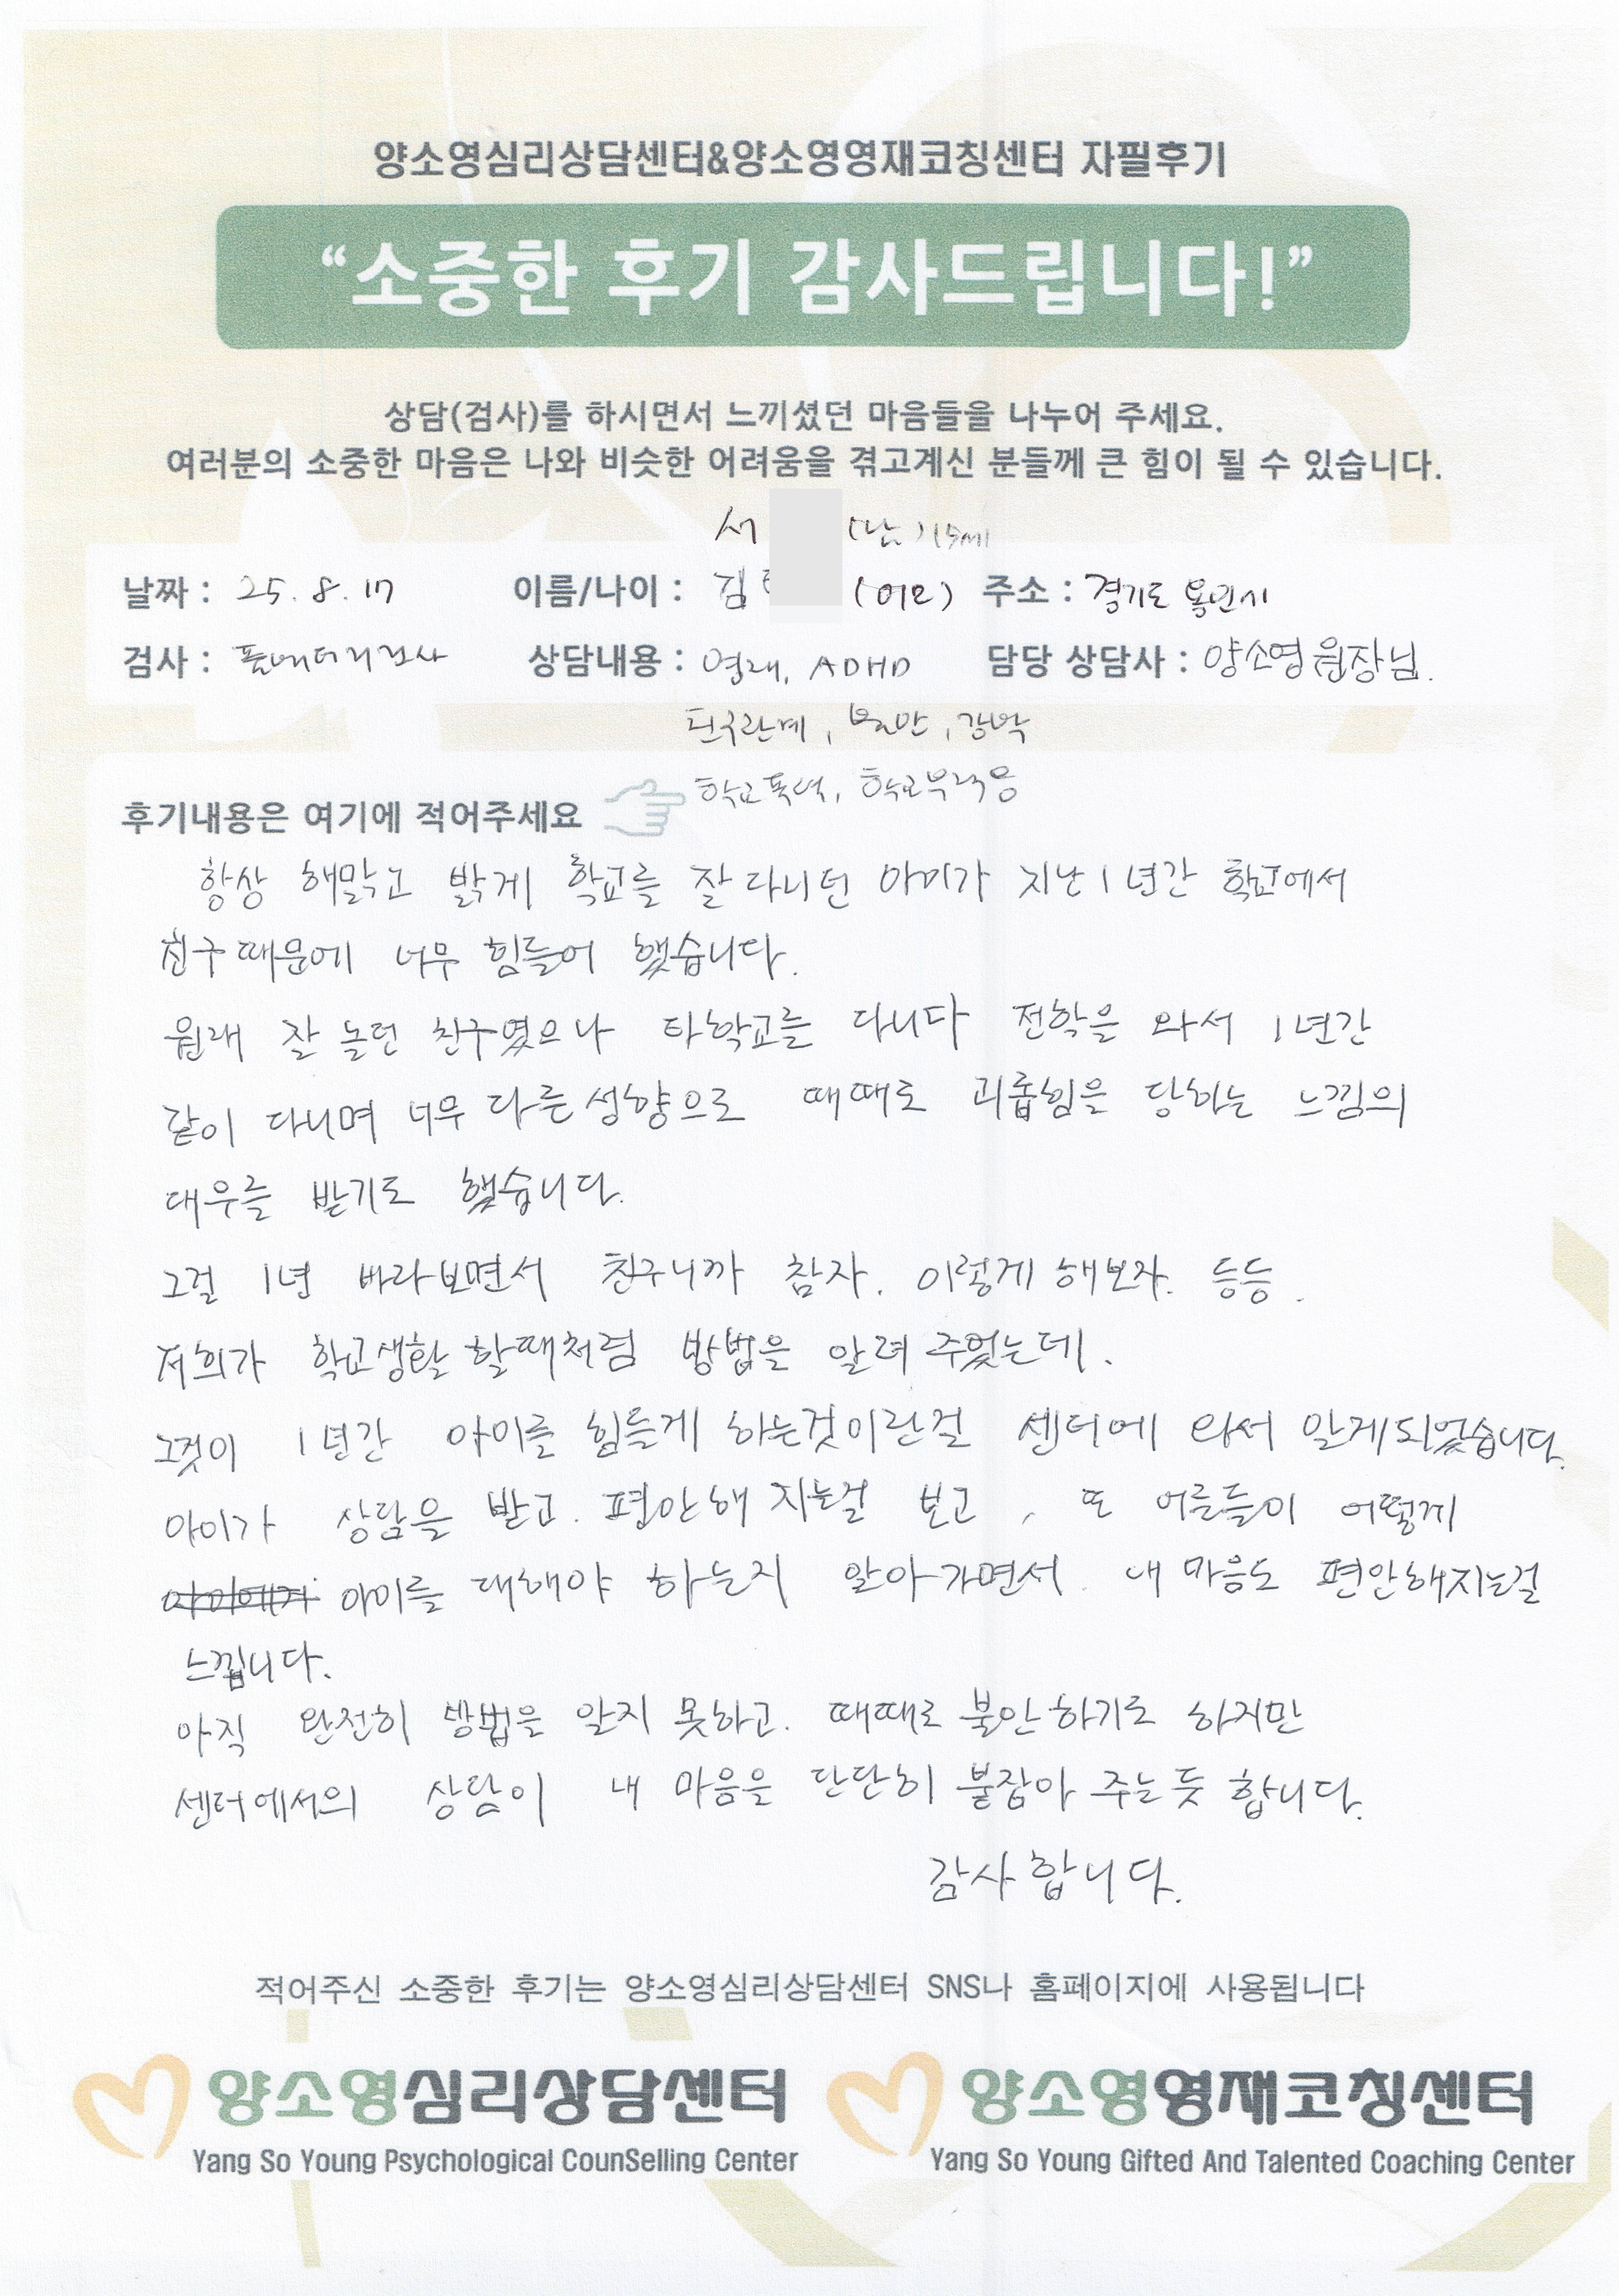 양소영심리상담센터&양소영영재코칭센터 자필후기
“소중한 후기 감사드립니다!”
상담(검사)를 하시면서 느끼셨던 마음들을 나누어 주세요.
여러분의 소중한 마음은 나와 비슷한 어려움을 겪고계신 분들께 큰 힘이 될 수 있습니다.
서 (남)
날짜 : 25. 8. 17 이름/나이 : 김 (어모) 주소 : 경기도 용인시
검사 : 풀배터리검사 상담내용 : 영재, ADHD 담당 상담사 : 양소영 원장님.
친구관계, 불안, 강박
학교폭력, 학교부적응
후기내용은 여기에 적어주세요
항상 해맑고 밝게 학교를 잘 다니던 아이가 지난 1년간 학교에서
친구 때문에 너무 힘들어 했습니다.
원래 잘 놀던 친구였으나 타학교를 다니다 전학을 와서 1년간
같이 다니며 너무 다른 성향으로 때때로 괴롭힘을 당하는 느낌의
대우를 받기도 했습니다.
그걸 1년 바라보면서 친구니까 참자. 이렇게 해보자. 등등.
저희가 학교생활 할때처럼 방법을 알려 주었는데.
그것이 1년간 아이를 힘들게 하는것이란걸 센터에 와서 알게되었습니다.
아이가 상담을 받고. 편안해 지는걸 보고, 또 어른들이 어떻게
아이를 대해야 하는지 알아가면서. 내 마음도 편안해지는걸
느낍니다.
아직 완전히 방법을 알지 못하고. 때때로 불안하기도 하지만
센터에서의 상담이 내 마음을 단단히 붙잡아 주는듯 합니다.
감사합니다.
적어주신 소중한 후기는 양소영심리상담센터 SNS나 홈페이지에 사용됩니다
양소영심리상담센터 양소영영재코칭센터
Yang So Young Psychological CounSelling Center Yang So Young Gifted And Talented Coaching Center